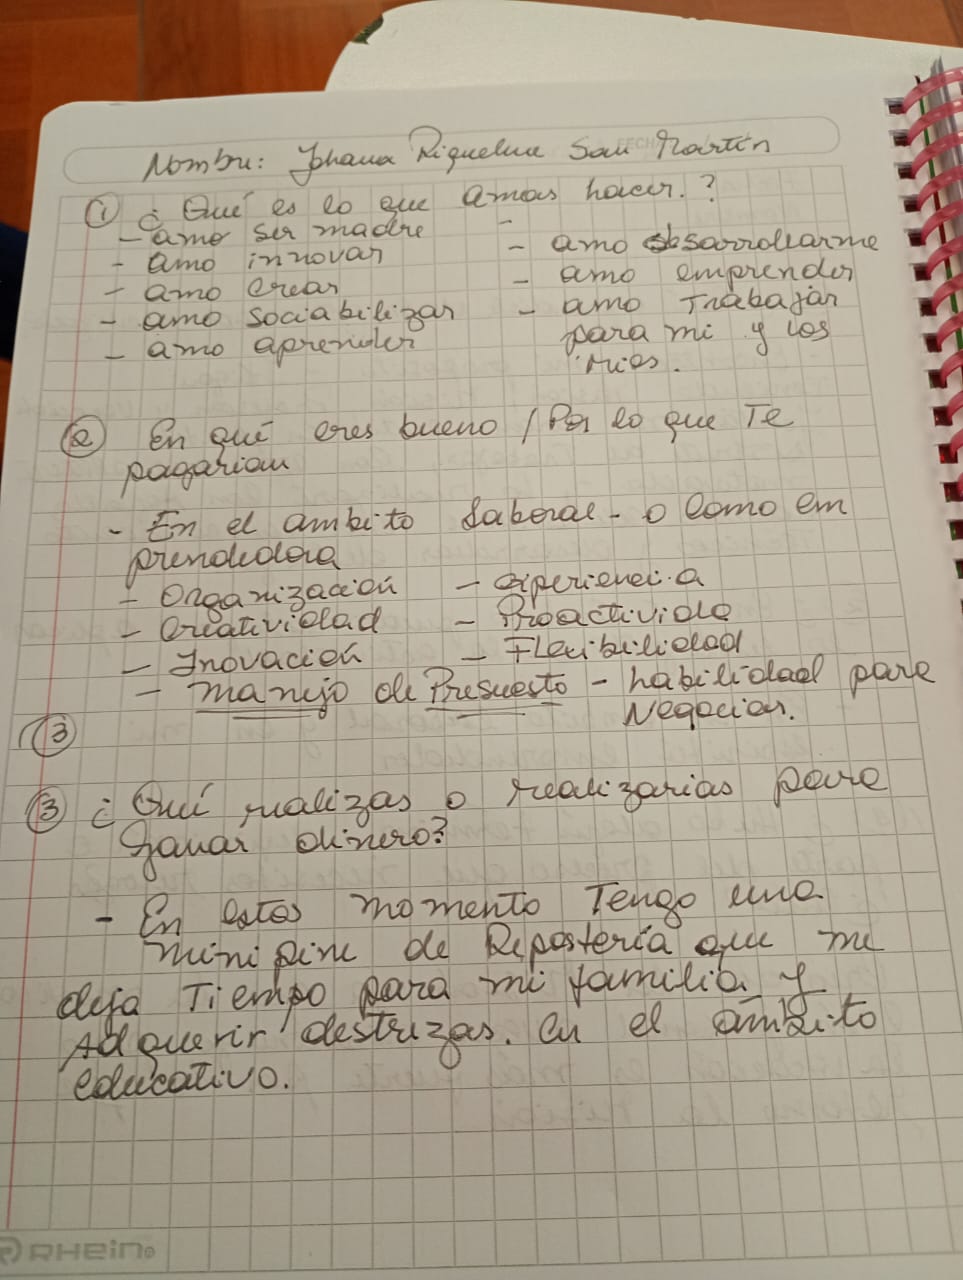 Nombre: Johana Riquelme San Martín
① ¿Qué es lo que amas hacer.?
- amo ser madre
- amo innovar
- amo crear
- amo sociabilizar
- amo aprender
- amo desarrollarme
- amo emprender
- amo Trabajar
para mi y los
mios.
② En qué eres bueno / Por lo que Te
pagarian
- En el ambito Laboral - o Como em
prendedora
- Organización - experiencia
- Creatividad - Proactivida
- Inovación - Flexibilidad
- manejo de Presuesto - habilidad para
Negocios.
③
③ ¿Qué realizas o realizarias para
Ganar dinero?
- En estos momento Tengo una
mini pime de Repostería que me
deja Tiempo para mi familia y
Adquerir destrezas. en el ambito
educativo.
RHein